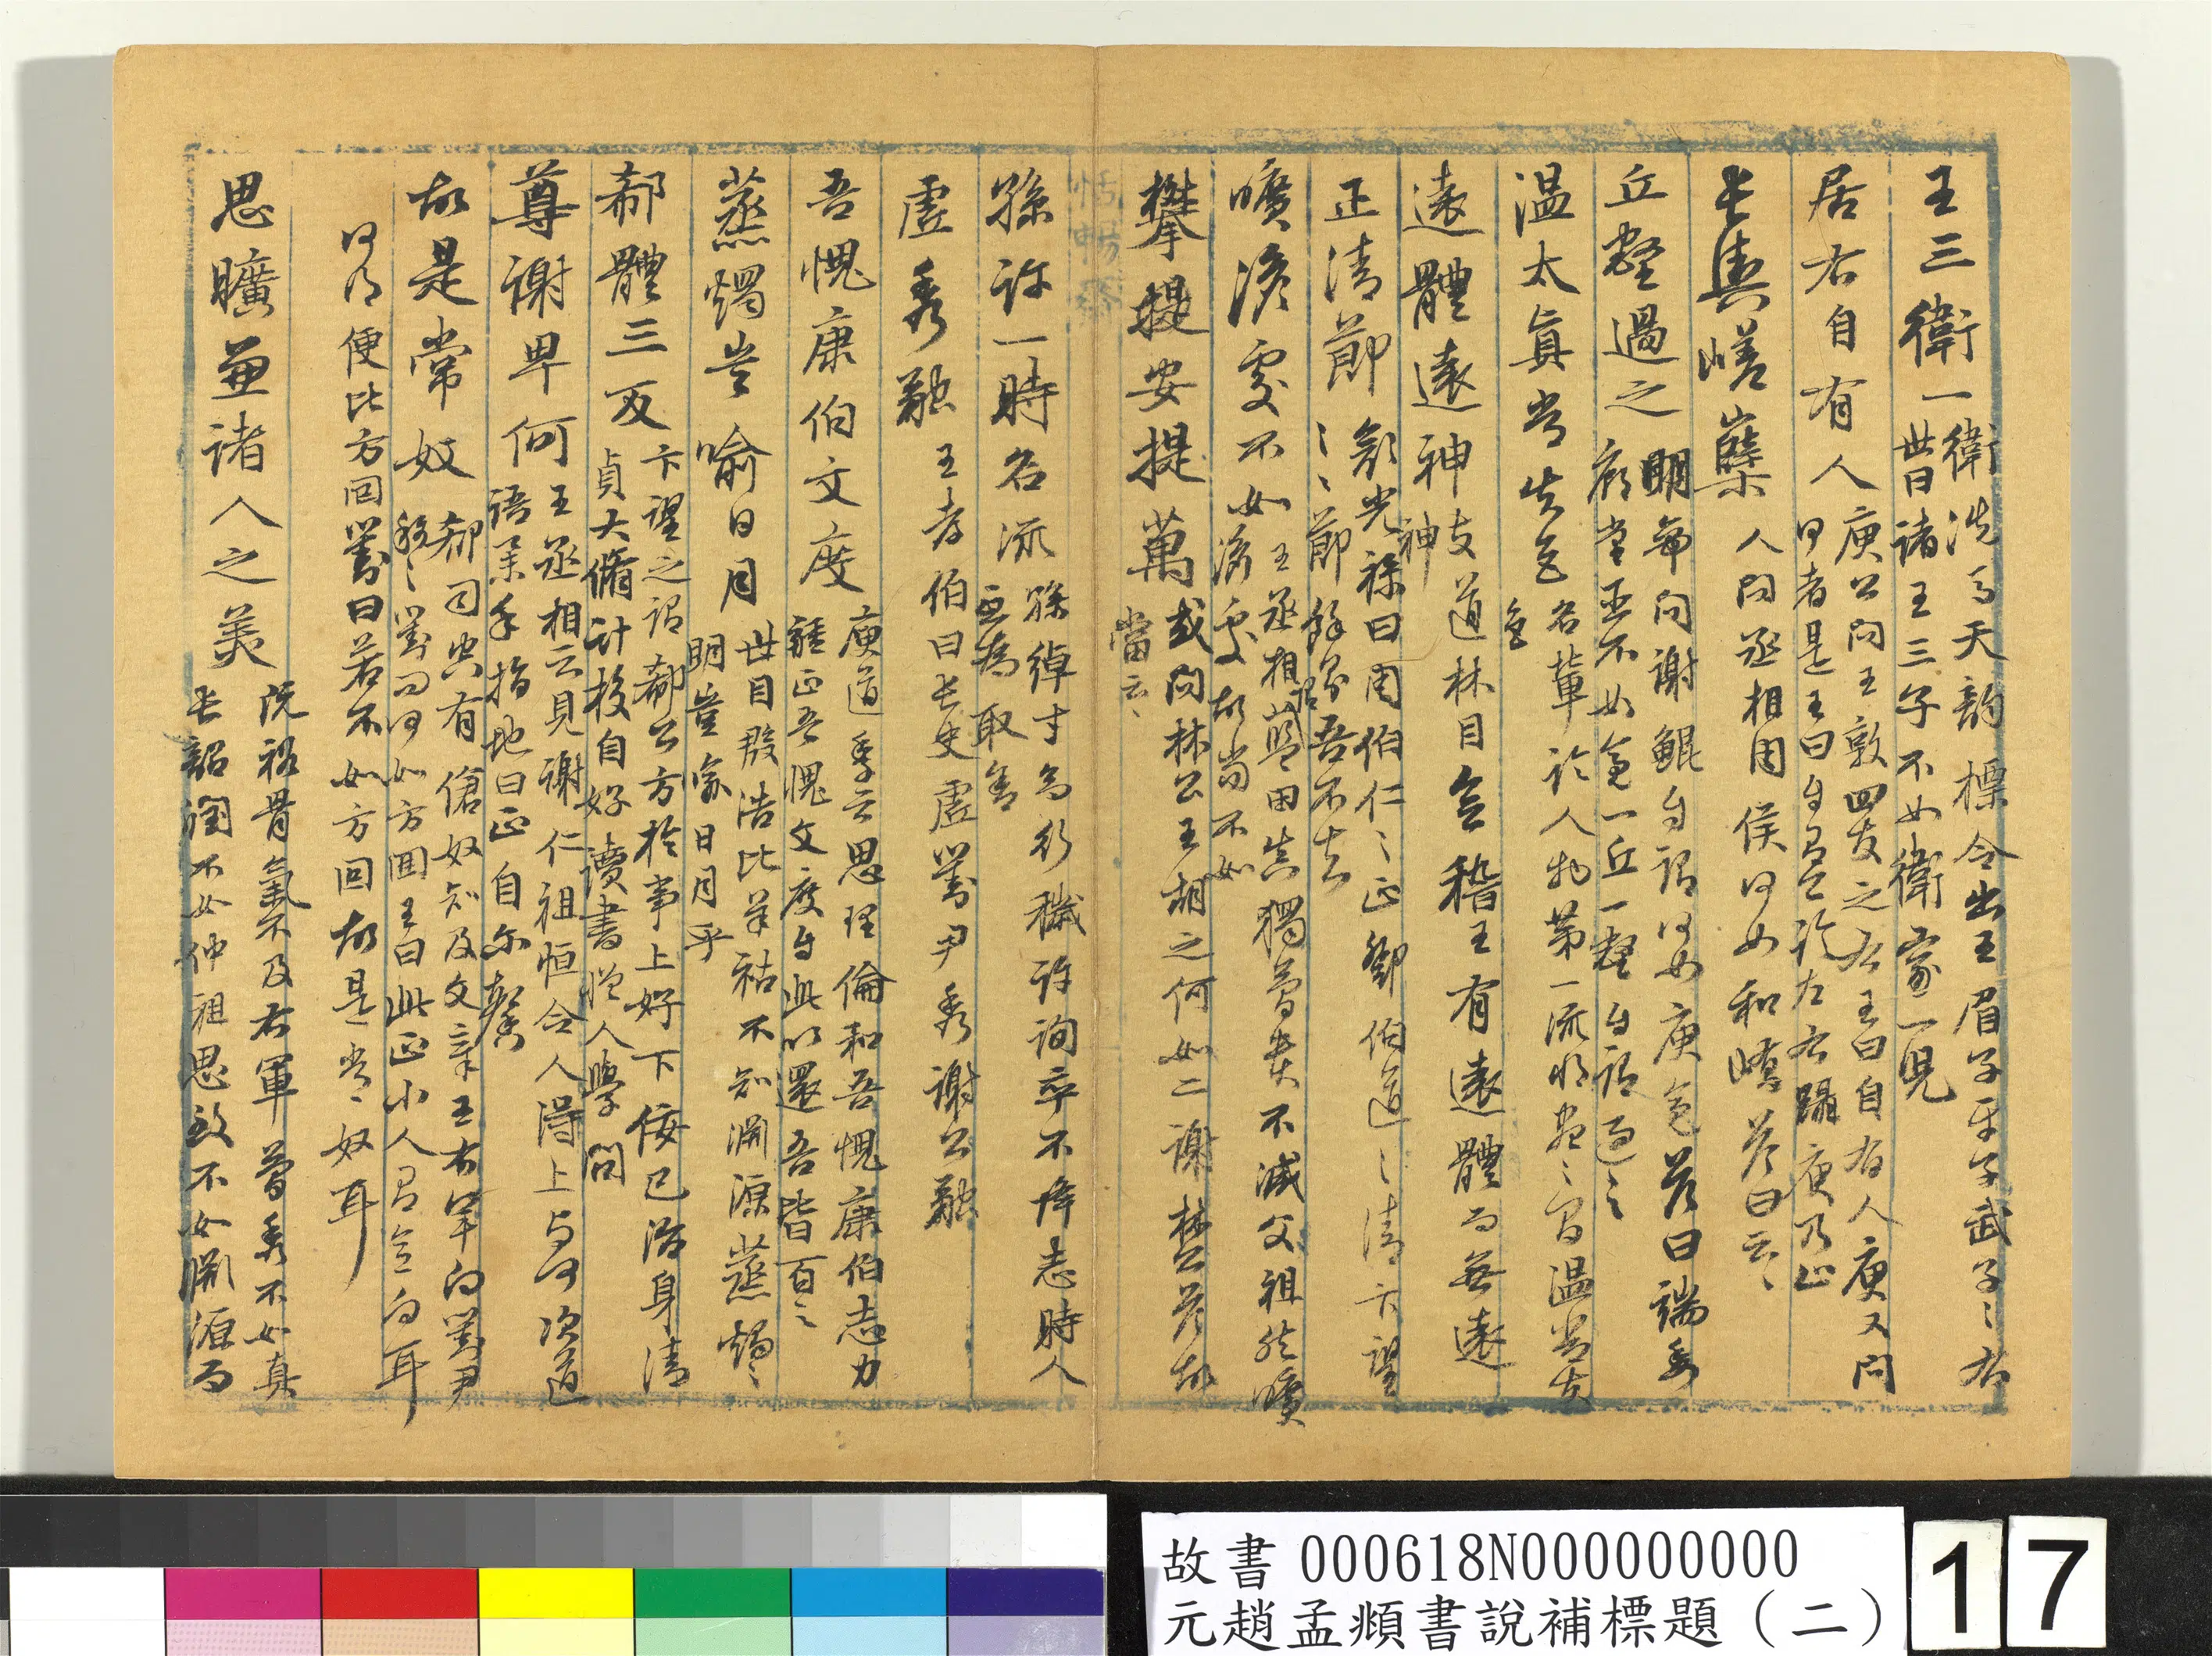 王三衛一衛洗馬天韵標令出王眉子平子武子〻右
世曰諸王三子不如衛家一兒
居右自有人庾公問王敦四友之右王曰自有人庾又問
何者是王曰自有公論左右躡庾乃止
長輿嵯櫱人問丞相周侯何如和嶠答曰云〻
丘壑過之明帝問謝鯤自謂何如庾亮答曰端委
廟堂臣不如亮一丘一壑自謂過之
温太真嘗失色名輩於人物第一流將盡〻間温嘗失
色
遠體遠神支道林目會稽王有遠體而無遠
神
正清節郗光禄曰周伯仁〻正鄧伯道〻清卞望
〻〻節餘吾不知
曠淡處不如王丞相藍田真獨簡貴不減父祖然曠
淡處故當不如
攀提安提萬或問林公王胡之何如二謝林公答故
當云〻
孫許一時名流孫綽才而行穢許詢卒不降志時人
互為取舍
虛秀融王孝伯曰長史虛劉尹秀謝公融
吾愧康伯文度庾道季云思理倫和吾愧康伯志力
彊正吾愧文度自此以還吾皆百之
蒸燭豈喻日月世目殷浩比羊祜不知淵源蒸燭〻
明豈喻日月乎
郗體三反卞望之謂郗公方於事上好下佞己治身清
貞大脩計校自好讀書憎人學問
尊謝卑何王丞相云見謝仁祖恒令人得上與何次道
語舉手指地曰正自爾馨
故是常奴郗司空有傖奴知及文章王右軍向劉尹
稱〻劉問何如方回王曰此正小人有意向耳
何得便比方回劉曰若不如方回故是常〻奴耳
思曠兼諸人之美阮裕骨氣不及右軍簡秀不如真
長韶潤不如仲祖思致不如淵源而
故書 000618N000000000
元趙孟頫書說補標題（二）
17